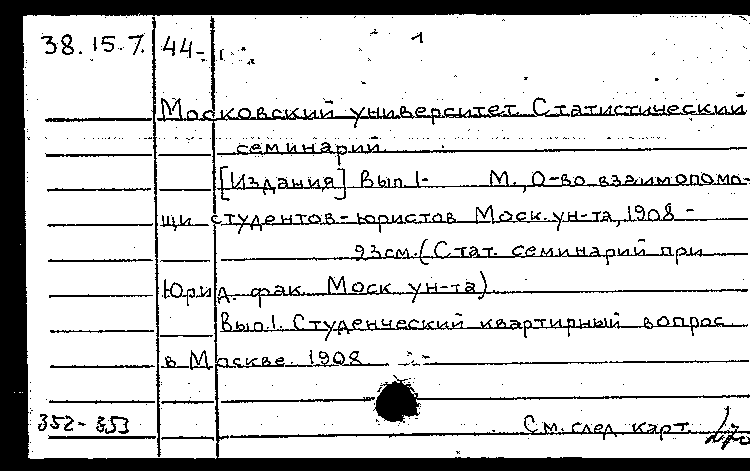 38.15.7. 44- 1
Московский университет. Статистический
семинарий.
[Издания] Вып.1- М., О-во взаимопомо-
щи студентов-юристов Моск. ун-та, 1908 -
23см. (Стат. семинарий при
Юрид. фак. Моск. ун-та).
Вып.1. Студенческий квартирный вопрос
в Москве. 1908
352-353 См. след. карт.